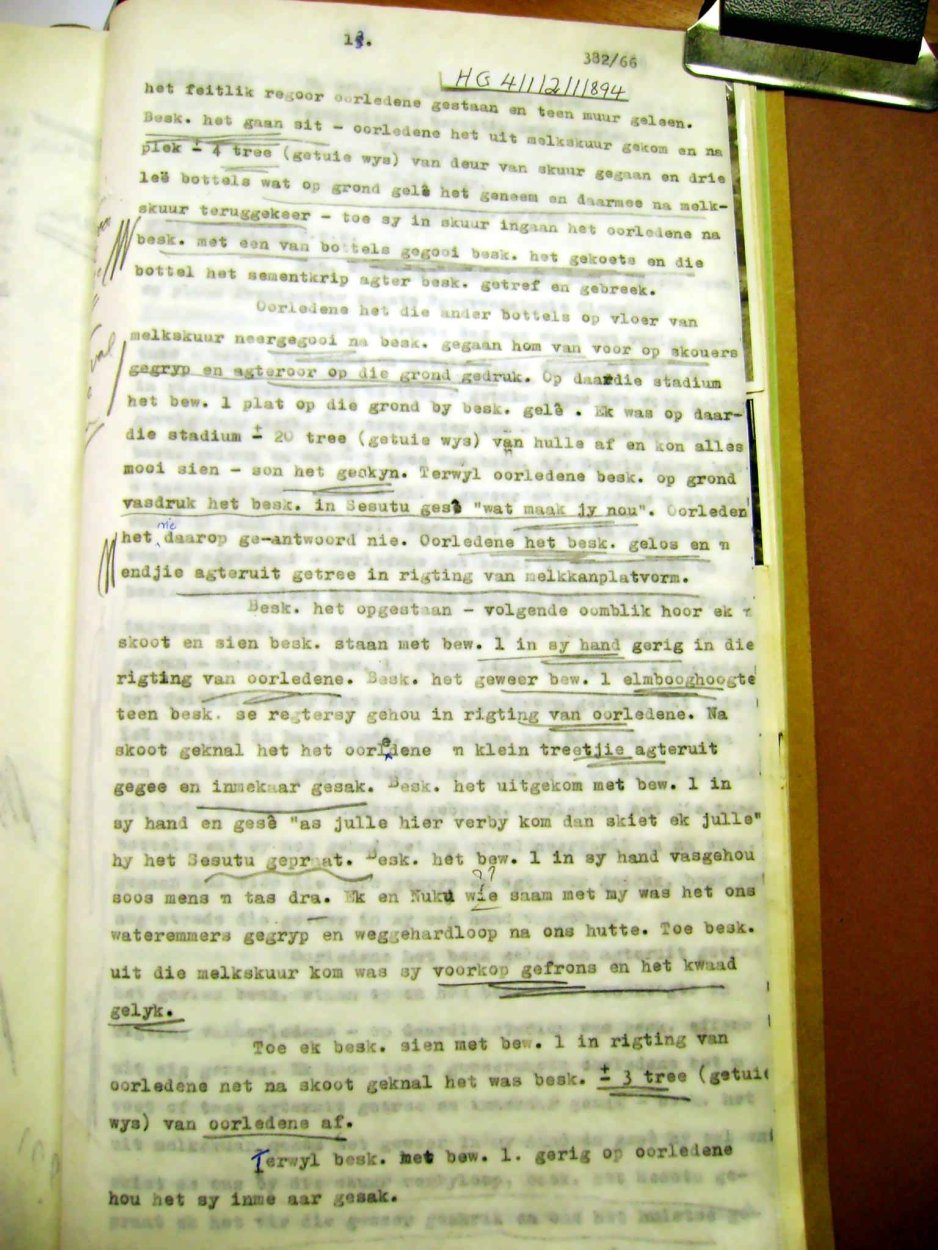 13.
382/66
HG 4/1/2/1/1894
het feitlik regoor oorledene gestaan en teen muur geleen.
Besk. het gaan sit - oorledene het uit melkskuur gekom en na
plek ± 4 tree (getuie wys) van deur van skuur gegaan en drie
leë bottels wat op grond gelê het geneem en daarmee na melk-
skuur teruggekeer - toe sy in skuur ingaan het oorledene na
besk. met een van bottels gegooi besk. het gekoets en die
bottel het sementkrip agter besk. getref en gebreek.
Oorledene het die ander bottels op vloer van
melkskuur neergegooi na besk. gegaan hom van voor op skouers
gegryp en agteroor op die grond gedruk. Op daardie stadium
het bew. 1 plat op die grond by besk. gelê . Ek was op daar-
die stadium ± 20 tree (getuie wys) van hulle af en kon alles
mooi sien - son het geskyn. Terwyl oorledene besk. op grond
vasdruk het besk. in Sesutu gesê "wat maak jy nou". Oorleden
het nie daarop ge-antwoord nie. Oorledene het besk. gelos en 'n
endjie agteruit getree in rigting van melkkanplatvorm.
Besk. het opgestaan - volgende oomblik hoor ek 'n
skoot en sien besk. staan met bew. 1 in sy hand gerig in die
rigting van oorledene. Besk. het geweer bew. 1 elmbooghoogte
teen besk. se regtersy gehou in rigting van oorledene. Na
skoot geknal het het oorledene 'n klein treetjie agteruit
gegee en inmekaar gesak. Besk. het uitgekom met bew. 1 in
sy hand en gesê "as julle hier verby kom dan skiet ek julle"
hy het Sesutu gepraat. Besk. het bew. 1 in sy hand vasgehou
??
soos mens 'n tas dra. Ek en Nuku wie saam met my was het ons
wateremmers gegryp en weggehardloop na ons hutte. Toe besk.
uit die melkskuur kom was sy voorkop gefrons en het kwaad
gelyk.
Toe ek besk. sien met bew. 1 in rigting van
oorledene net na skoot geknal het was besk. ± 3 tree (getuie
wys) van oorledene af.
Terwyl besk. met bew. 1. gerig op oorledene
hou het sy inme aar gesak.